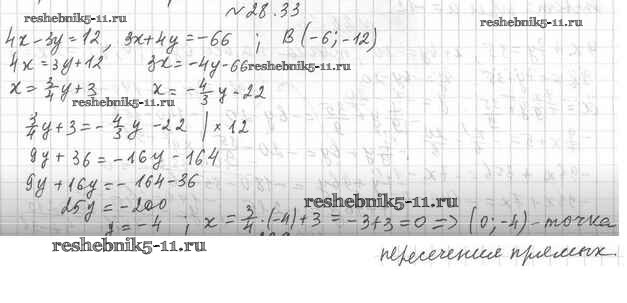 №28.33
reshebnik5-11.ru
reshebnik5-11.ru
4x-3y=12, 3x+4y=-66 ; B(-6;-12)
4x=3y+12 3x=-4y-66 reshebnik5-11.ru
x=3/4y+3 x=-4/3y-22
reshebnik5-11.ru
3/4y+3=-4/3y-22 | ×12
9y+36=-16y-164
9y+16y=-164-36
25y=-200 reshebnik5-11.ru
y=-4 ; x=3/4·(-4)+3=-3+3=0=>(0;-4)-точка
reshebnik5-11.ru
пересечения прямых.